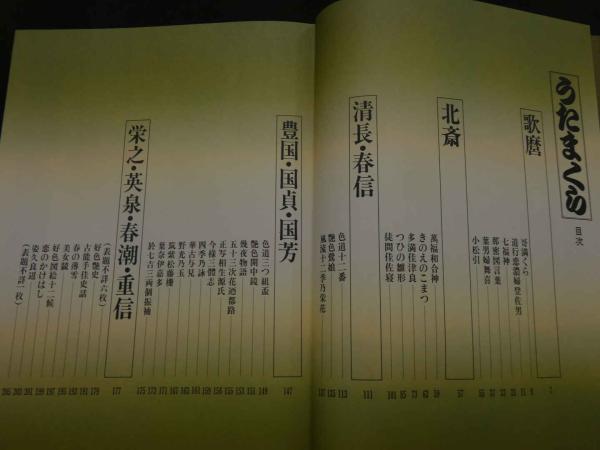 うたまくら
目次
歌麿
哥満くら
道行恋濃婦登佐男
七福神
那密図言葉
葉男婦舞喜
小松引
北斎
萬福和合神
きのえのこまつ
多満佳津良
つひの雛形
徒間佳佐寝
清長・春信
色道十二番
艶色鶯娘
風流十二季乃栄花
豊国・国貞・国芳
色道三つ組盃
艶色閨中鏡
幾夜物語
五十三次花廼都路
正写相生源氏
今様三體志
四季乃詠
華古与見
野光乃玉
筑紫松藤柵
葉奈伊嘉多
於七吉三両個振袖
栄之・英泉・春潮・重信
(表題不詳六枚)
好色艶史
古能手佳史話
春の薄雪
美女競
好色図絵十二候
恋のかけはし
姿久良選
(表題不詳一枚)